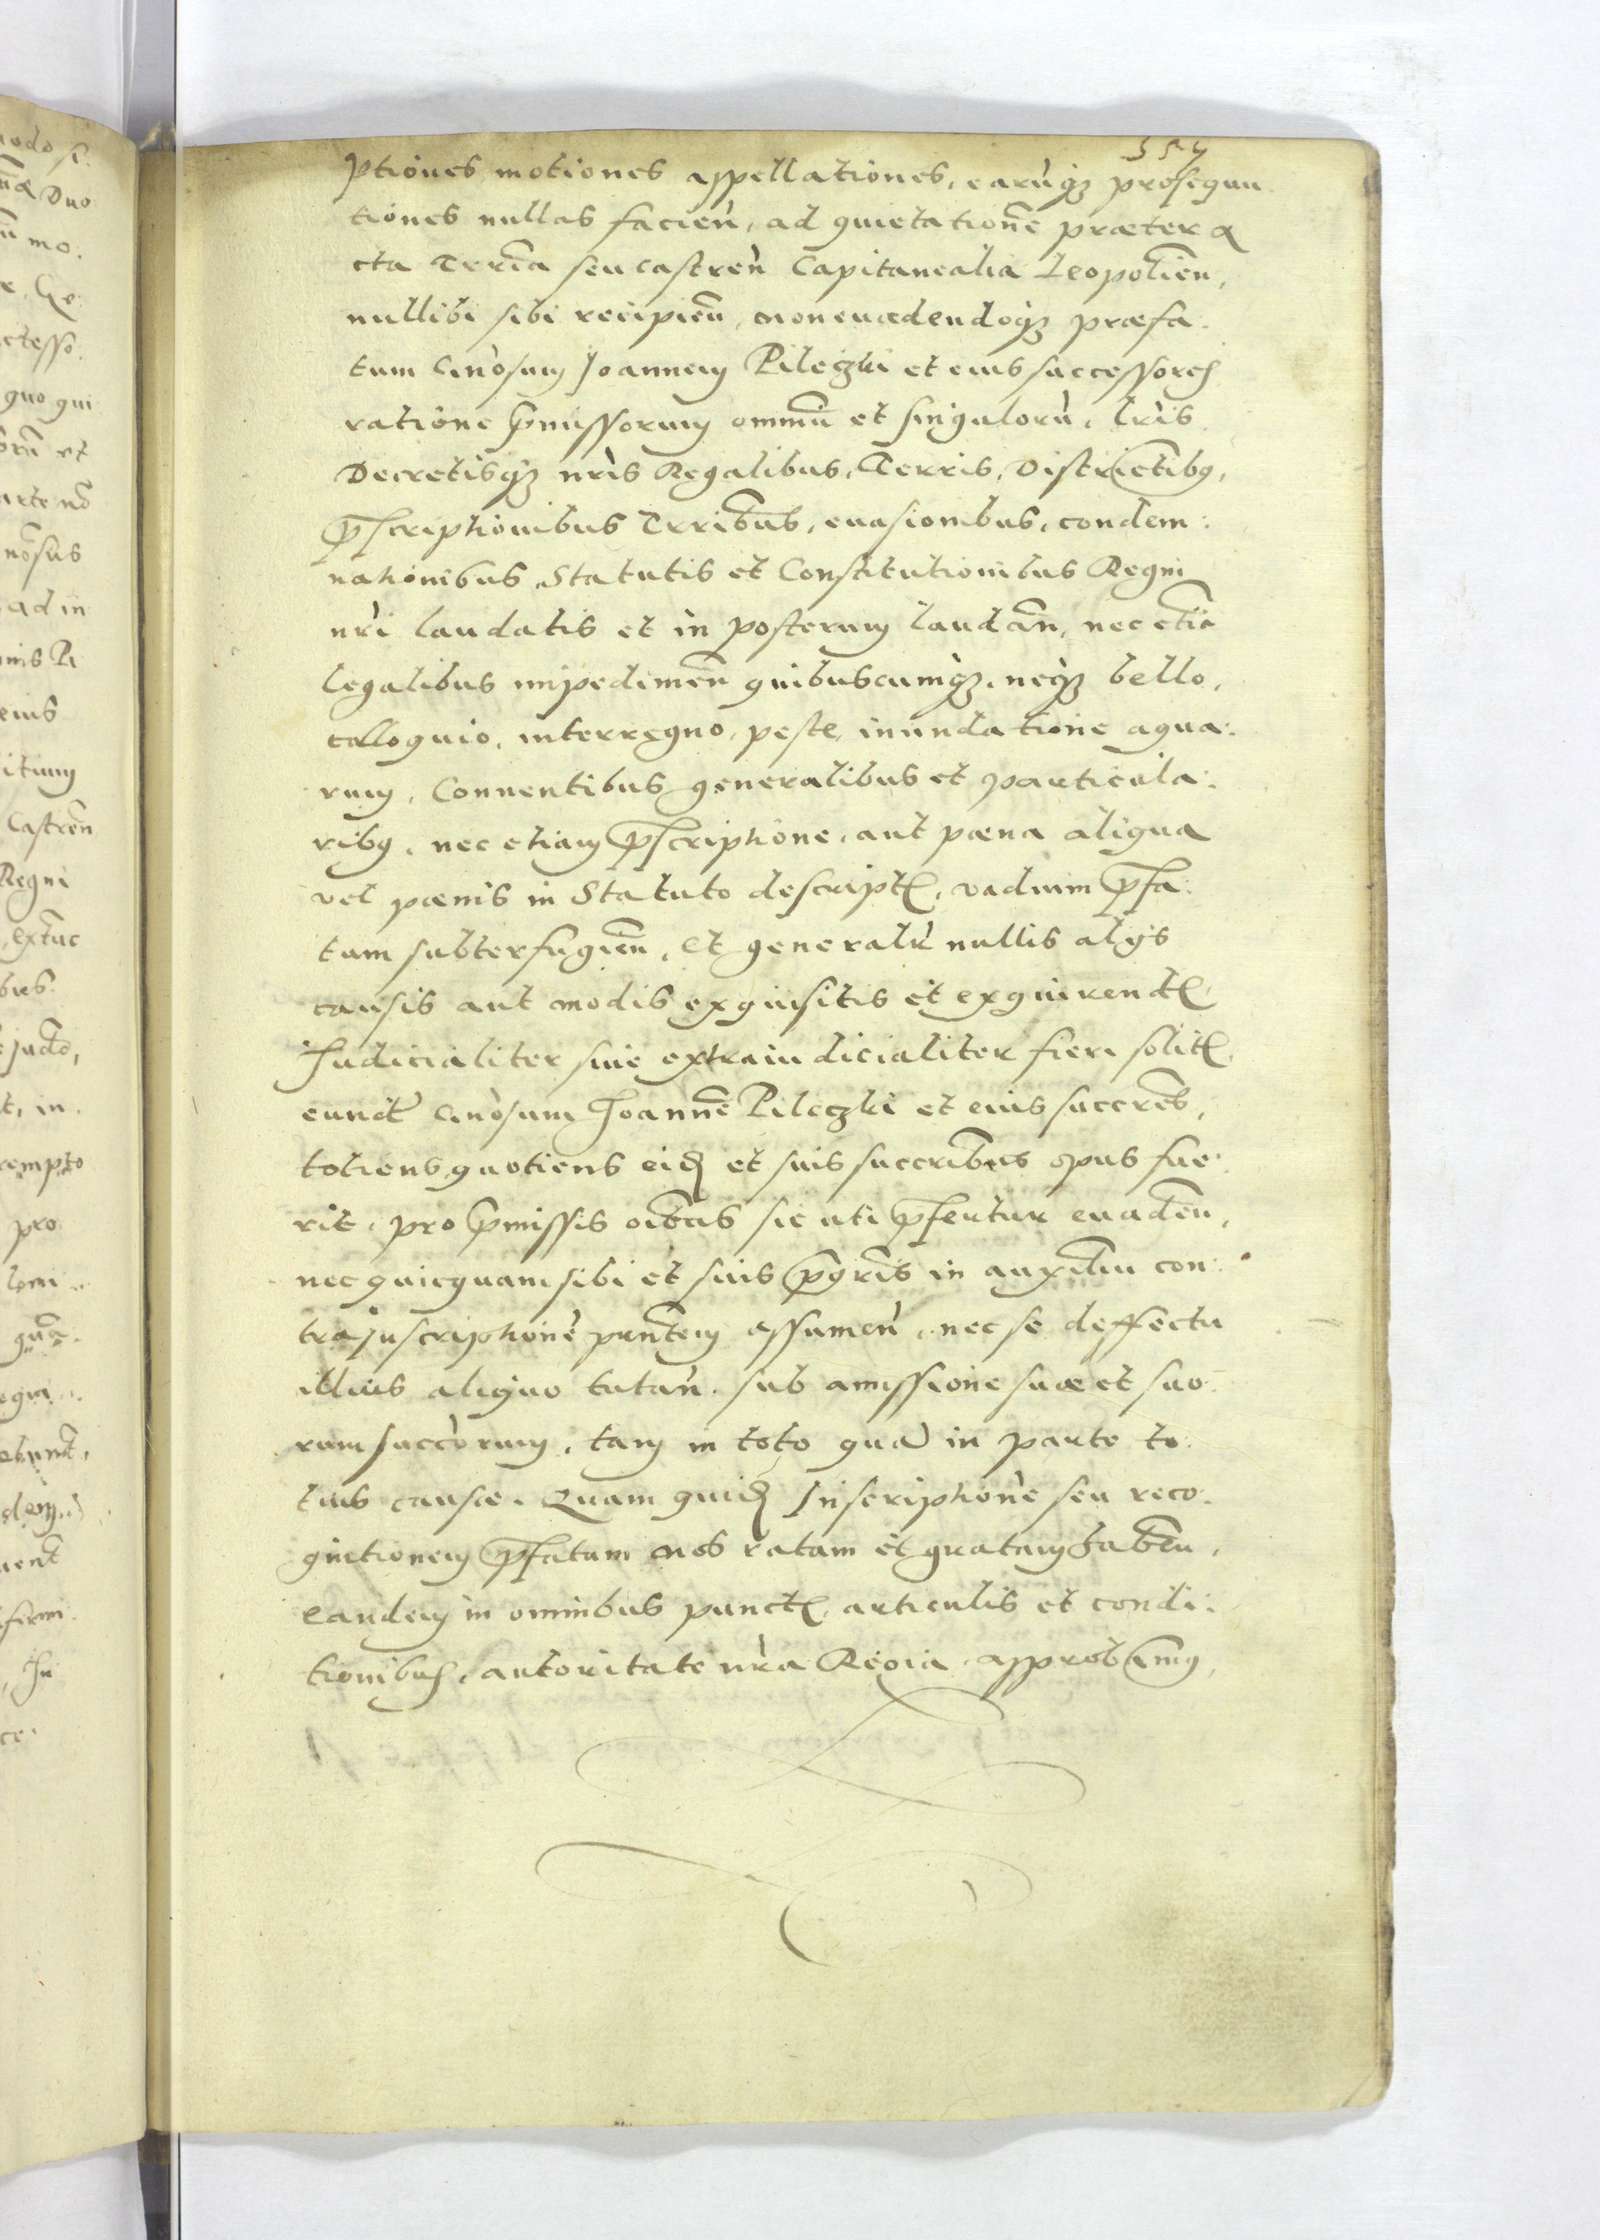 ptiones motiones appellationes, earùq₃ prosequu
tiones nullas facieñ, ad quietationē præter a
cta Terr̄ia seu castreñ Capitanealia Leopolien̄,
nullibi sibi recipien̄, non euadendoq₃ præfa:
tum Gñosum Joannem Pileczki et eius successores
ratione p̄missorum omniū et singulorù, lr̄is
Decretisq₃ nr̄is Regalibus, Terris, Districtibꝰ,
p̄scriptionibus Terribus, euasionibus, condem:
nationibus, Statutis et Constitutionibus Regni
nr̄i laudatis et in posterum laudan̄, nec etiā
legalibus impedimen̄ quibuscumq₃, neq₃ bello,
colloquio, interregno, peste, inundatione aqua:
rum, Conuentibus generalibus et particula:
ribꝰ, nec etiam p̄scriptione, aut pæna aliqua
vel pænis in Statuto descript̄, vadium p̄fa:
tum subterfugien̄, et generalr̄ nullis alijs
causis aut modis exquisitis et exquirend̄
Judicialiter siue extraiudicialiter fieri solit̄
eund̄ Gñosum Joannē Pileczki et eius succres̄,
totiens quotiens eid̄ et suis succribus opus fue:
rit, pro p̄missis oībus sic uti p̄fertur euaden̄,
nec quicquam sibi et suis p̄gris̄ in auxiliū con:
tra juscriptionē pnt̄em assumen̄, nec se deffectu
illius aliquo tutan̄, sub amissione suæ et suo:
rum succ̄orum, tam in toto quā in parte to:
tius causæ. Quam quid̄ Inscriptionē seu reco:
gnitionem p̄fatam nos ratam et gratam haben̄,
eandem in omnibus punct̄, articulis et condi:
tionibus, autoritate nr̄a Regia approbamꝰ,